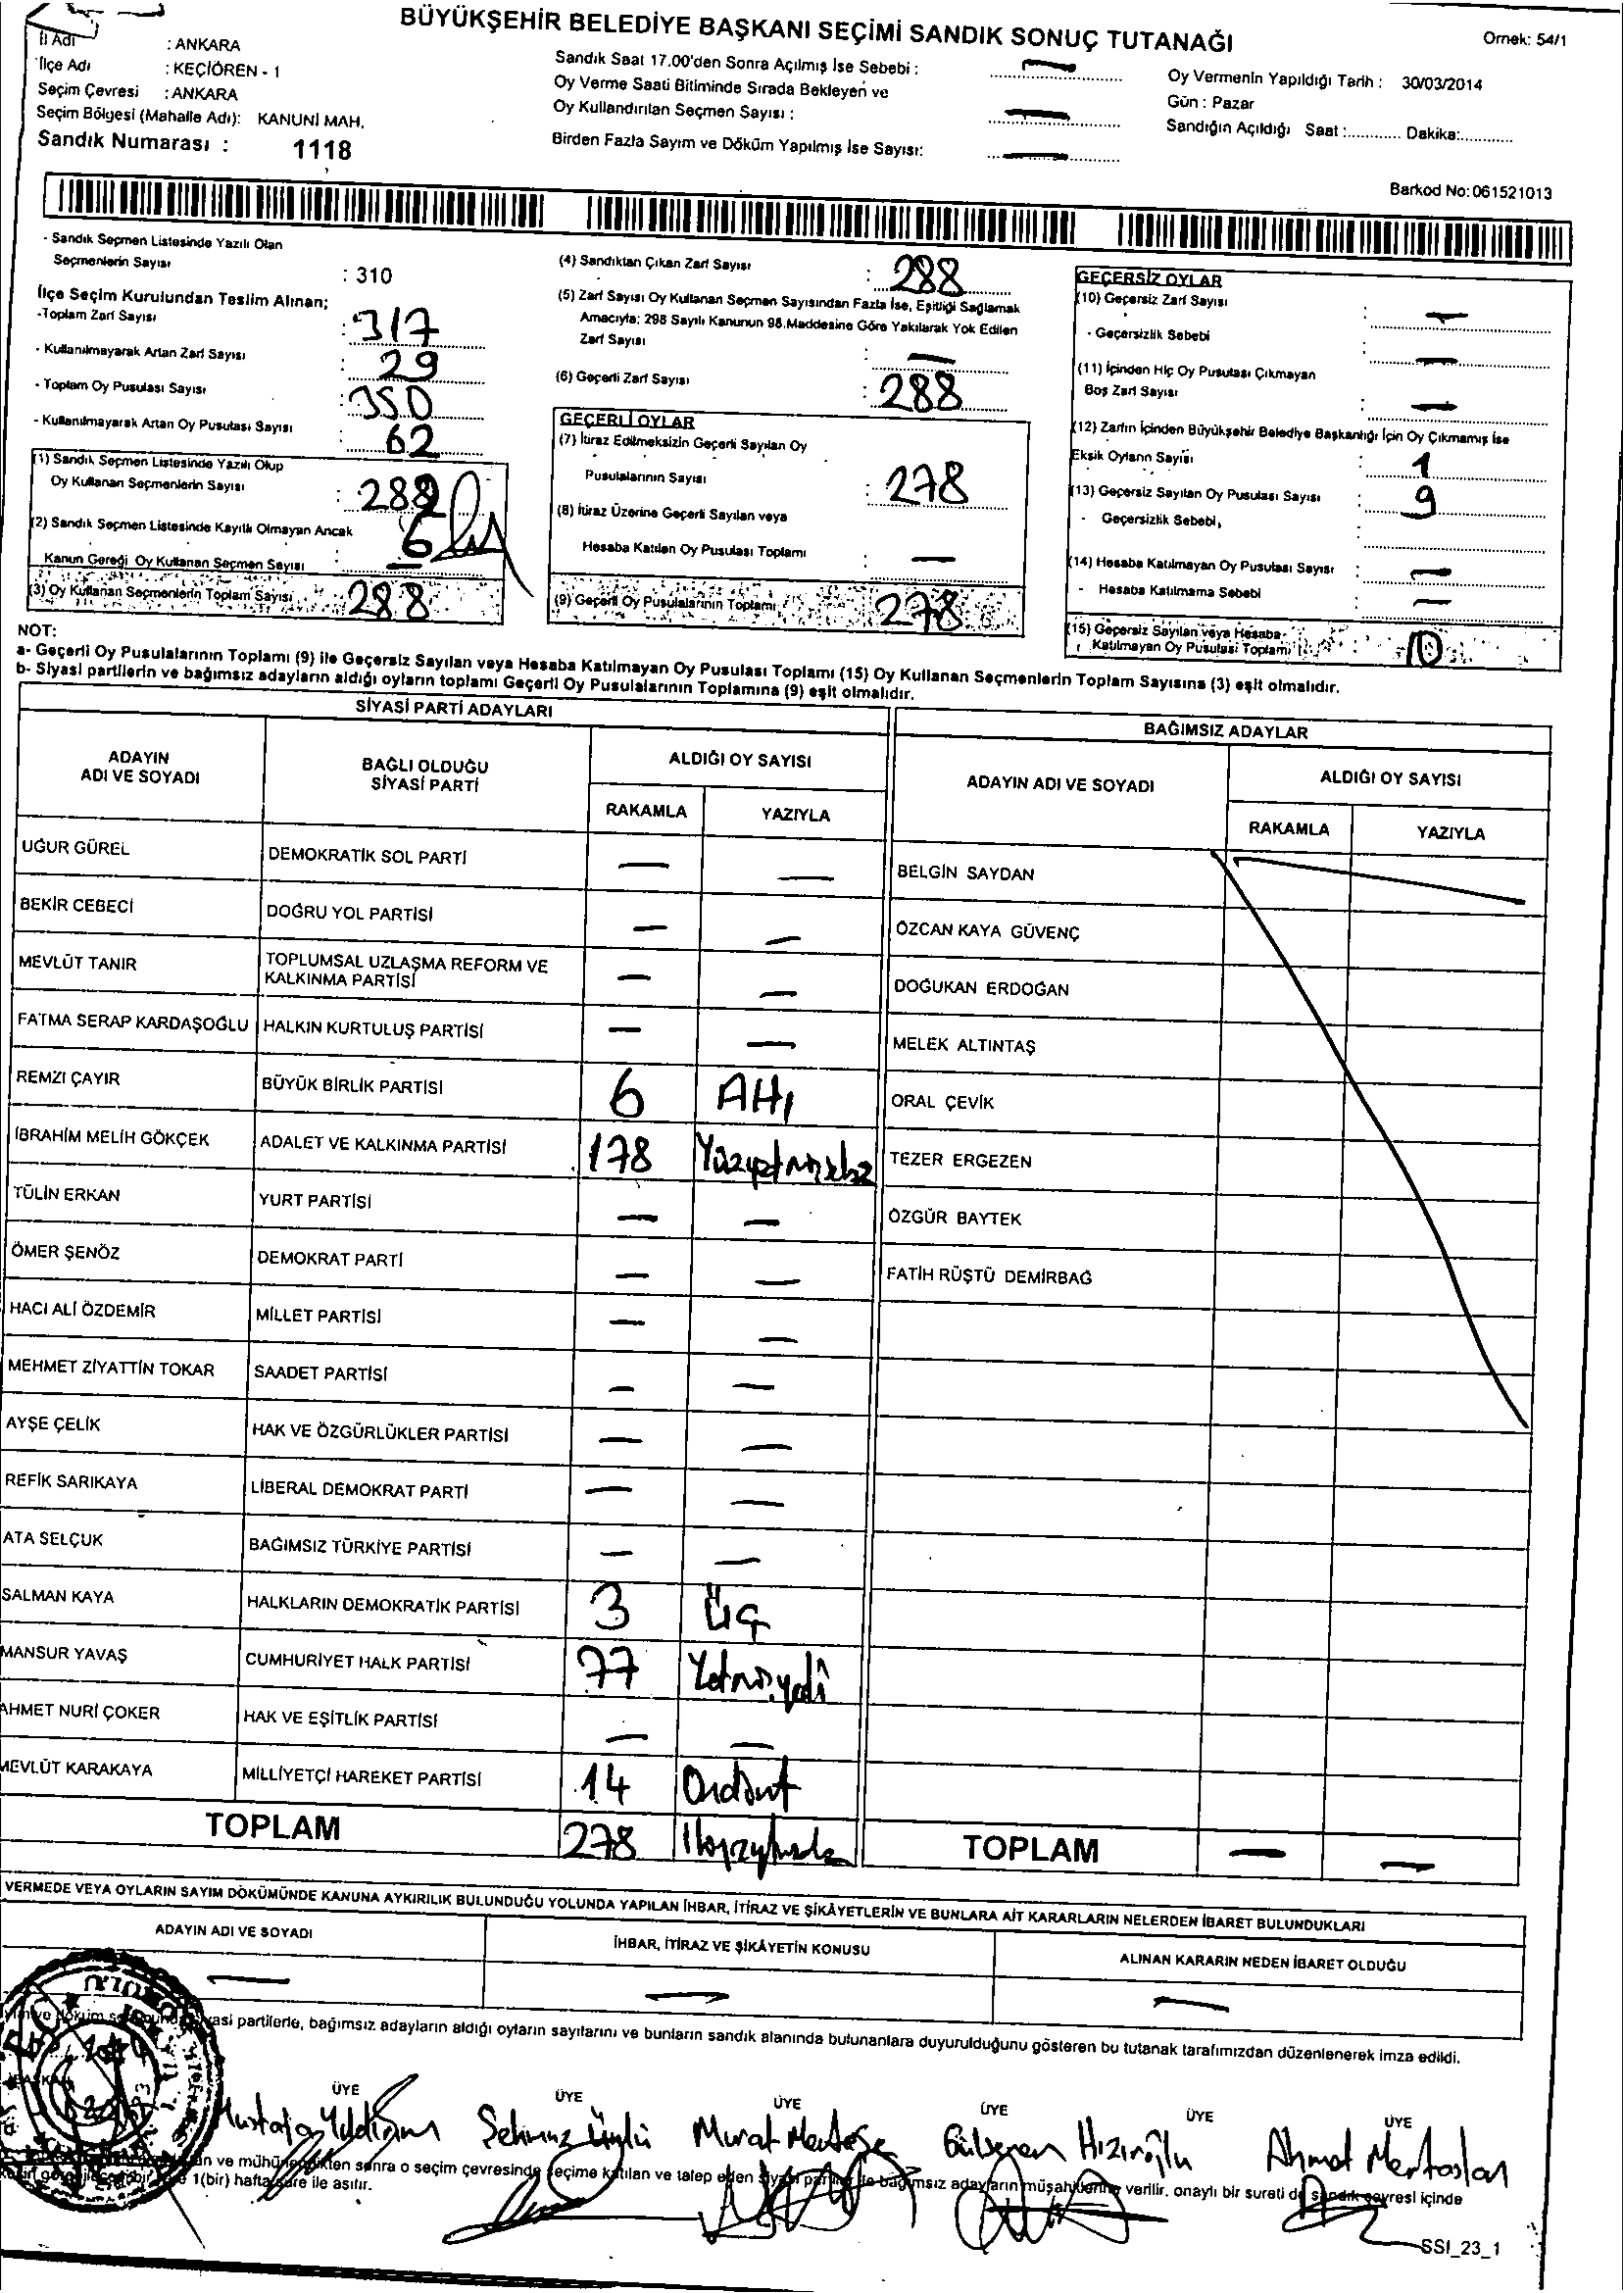 BÜYÜKŞEHİR BELEDİYE BAŞKANI SEÇİMİ SANDIK SONUÇ TUTANAĞI
Örnek: 54/1
İl Adı : ANKARA
İlçe Adı : KEÇİÖREN - 1
Seçim Çevresi : ANKARA
Seçim Bölgesi (Mahalle Adı): KANUNİ MAH.
Sandık Numarası : 1118
Sandık Saat 17.00'den Sonra Açılmış İse Sebebi : —
Oy Verme Saati Bitiminde Sırada Bekleyen ve
Oy Kullandırılan Seçmen Sayısı : —
Birden Fazla Sayım ve Döküm Yapılmış İse Sayısı: —
Oy Vermenin Yapıldığı Tarih : 30/03/2014
Gün : Pazar
Sandığın Açıldığı Saat :............ Dakika:.............
Barkod No:061521013
- Sandık Seçmen Listesinde Yazılı Olan
Seçmenlerin Sayısı : 310
İlçe Seçim Kurulundan Teslim Alınan;
-Toplam Zarf Sayısı : 317
- Kullanılmayarak Artan Zarf Sayısı : 29
- Toplam Oy Pusulası Sayısı : 350
- Kullanılmayarak Artan Oy Pusulası Sayısı : 62
(1) Sandık Seçmen Listesinde Yazılı Olup
Oy Kullanan Seçmenlerin Sayısı : 282
(2) Sandık Seçmen Listesinde Kayıtlı Olmayan Ancak
Kanun Gereği Oy Kullanan Seçmen Sayısı : 6
(3) Oy Kullanan Seçmenlerin Toplam Sayısı : 288
(4) Sandıktan Çıkan Zarf Sayısı : 288
(5) Zarf Sayısı Oy Kullanan Seçmen Sayısından Fazla İse, Eşitliği Sağlamak
Amacıyla; 298 Sayılı Kanunun 98.Maddesine Göre Yakılarak Yok Edilen
Zarf Sayısı : —
(6) Geçerli Zarf Sayısı : 288
GEÇERLİ OYLAR
(7) İtiraz Edilmeksizin Geçerli Sayılan Oy
Pusulalarının Sayısı : 278
(8) İtiraz Üzerine Geçerli Sayılan veya
Hesaba Katılan Oy Pusulası Toplamı : —
(9) Geçerli Oy Pusulalarının Toplamı : 278
GEÇERSİZ OYLAR
(10) Geçersiz Zarf Sayısı : —
- Geçersizlik Sebebi : —
(11) İçinden Hiç Oy Pusulası Çıkmayan
Boş Zarf Sayısı : —
(12) Zarfın İçinden Büyükşehir Belediye Başkanlığı İçin Oy Çıkmamış İse
Eksik Oyların Sayısı : 1
(13) Geçersiz Sayılan Oy Pusulası Sayısı : 9
- Geçersizlik Sebebi,
(14) Hesaba Katılmayan Oy Pusulası Sayısı : —
- Hesaba Katılmama Sebebi : —
(15) Geçersiz Sayılan veya Hesaba
Katılmayan Oy Pusulası Toplamı : 10
NOT:
a- Geçerli Oy Pusulalarının Toplamı (9) ile Geçersiz Sayılan veya Hesaba Katılmayan Oy Pusulası Toplamı (15) Oy Kullanan Seçmenlerin Toplam Sayısına (3) eşit olmalıdır.
b- Siyasi partilerin ve bağımsız adayların aldığı oyların toplamı Geçerli Oy Pusulalarının Toplamına (9) eşit olmalıdır.
SİYASİ PARTİ ADAYLARI
ADAYIN ADI VE SOYADI
BAĞLI OLDUĞU SİYASİ PARTİ
ALDIĞI OY SAYISI
RAKAMLA YAZIYLA
UĞUR GÜREL DEMOKRATİK SOL PARTİ — —
BEKİR CEBECİ DOĞRU YOL PARTİSİ — —
MEVLÜT TANIR TOPLUMSAL UZLAŞMA REFORM VE KALKINMA PARTİSİ — —
FATMA SERAP KARDAŞOĞLU HALKIN KURTULUŞ PARTİSİ — —
REMZİ ÇAYIR BÜYÜK BİRLİK PARTİSİ 6 Altı
İBRAHİM MELİH GÖKÇEK ADALET VE KALKINMA PARTİSİ 178 Yüzyetmişsekiz
TÜLİN ERKAN YURT PARTİSİ — —
ÖMER ŞENÖZ DEMOKRAT PARTİ — —
HACI ALİ ÖZDEMİR MİLLET PARTİSİ — —
MEHMET ZİYATTİN TOKAR SAADET PARTİSİ — —
AYŞE ÇELİK HAK VE ÖZGÜRLÜKLER PARTİSİ — —
REFİK SARIKAYA LİBERAL DEMOKRAT PARTİ — —
ATA SELÇUK BAĞIMSIZ TÜRKİYE PARTİSİ — —
SALMAN KAYA HALKLARIN DEMOKRATİK PARTİSİ 3 Üç
MANSUR YAVAŞ CUMHURİYET HALK PARTİSİ 77 Yetmişyedi
AHMET NURİ ÇOKER HAK VE EŞİTLİK PARTİSİ — —
MEVLÜT KARAKAYA MİLLİYETÇİ HAREKET PARTİSİ 14 Ondört
TOPLAM 278
BAĞIMSIZ ADAYLAR
ADAYIN ADI VE SOYADI
ALDIĞI OY SAYISI
RAKAMLA YAZIYLA
BELGİN SAYDAN
ÖZCAN KAYA GÜVENÇ
DOĞUKAN ERDOĞAN
MELEK ALTINTAŞ
ORAL ÇEVİK
TEZER ERGEZEN
ÖZGÜR BAYTEK
FATİH RÜŞTÜ DEMİRBAĞ
TOPLAM — —
VERMEDE VEYA OYLARIN SAYIM DÖKÜMÜNDE KANUNA AYKIRILIK BULUNDUĞU YOLUNDA YAPILAN İHBAR, İTİRAZ VE ŞİKÂYETLERİN VE BUNLARA AİT KARARLARIN NELERDEN İBARET BULUNDUKLARI
ADAYIN ADI VE SOYADI
İHBAR, İTİRAZ VE ŞİKÂYETİN KONUSU
ALINAN KARARIN NEDEN İBARET OLDUĞU
— — —
siyasi partilerle, bağımsız adayların aldığı oyların sayılarını ve bunların sandık alanında bulunanlara duyurulduğunu gösteren bu tutanak tarafımızdan düzenlenerek imza edildi.
ÜYE ÜYE ÜYE ÜYE ÜYE ÜYE
Mustafa Yıldırım Murat Gülseren Hızıroğlu Ahmet Mertaslan
ve mühürlendikten sonra o seçim çevresinde seçime katılan ve talep eden siyasi partiler ile bağımsız adayların müşahitlerine verilir, onaylı bir sureti de sandık çevresi içinde
1(bir) hafta süre ile asılır.
SSI_23_1